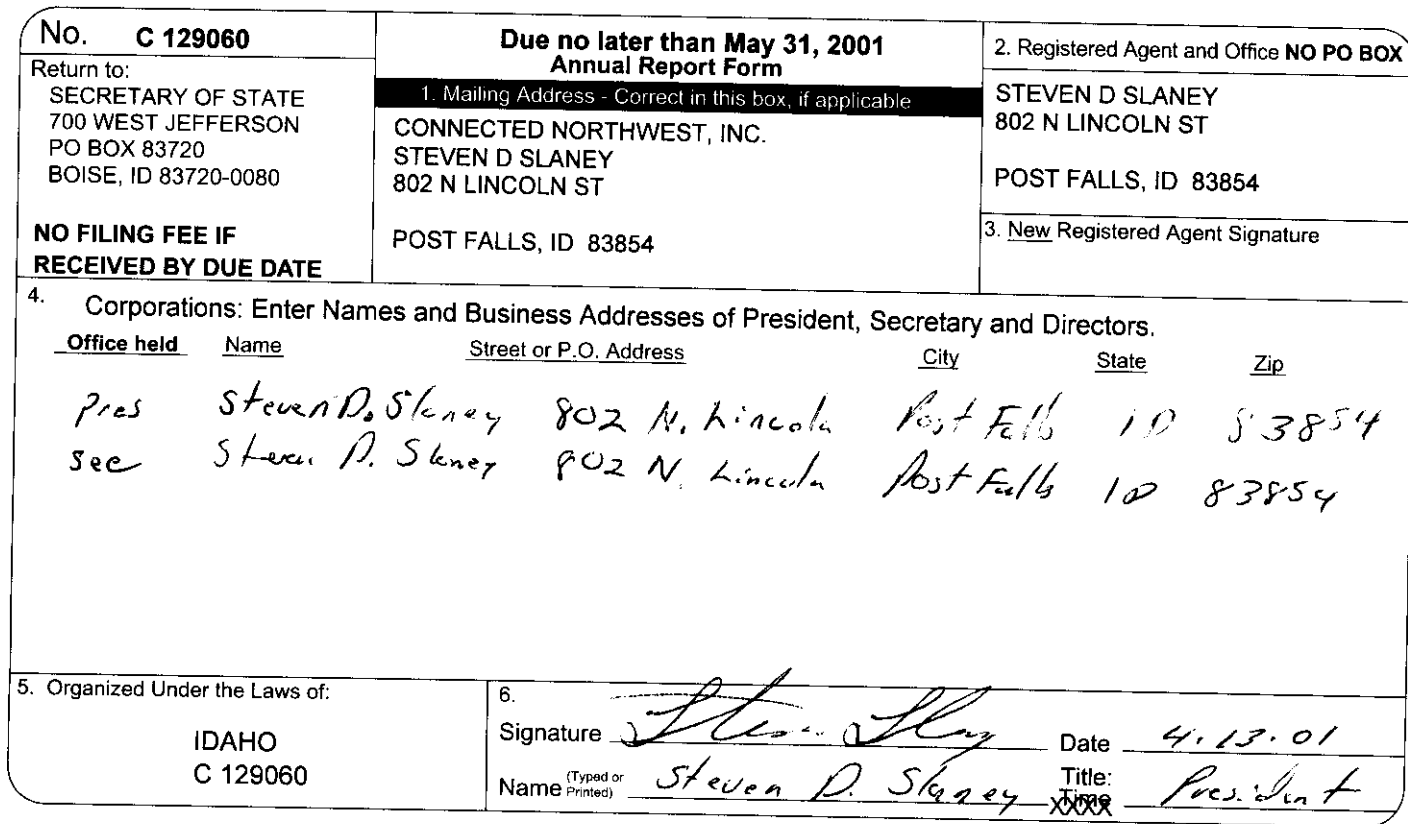 No. C 129060
Return to:
SECRETARY OF STATE
700 WEST JEFFERSON
PO BOX 83720
BOISE, ID 83720-0080
NO FILING FEE IF
RECEIVED BY DUE DATE
Due no later than May 31, 2001
Annual Report Form
1. Mailing Address - Correct in this box, if applicable
CONNECTED NORTHWEST, INC.
STEVEN D SLANEY
802 N LINCOLN ST
POST FALLS, ID 83854
2. Registered Agent and Office NO PO BOX
STEVEN D SLANEY
802 N LINCOLN ST
POST FALLS, ID 83854
3. New Registered Agent Signature
4. Corporations: Enter Names and Business Addresses of President, Secretary and Directors.
Office held Name Street or P.O. Address City State Zip
Pres Steven D. Slaney 802 N. Lincoln Post Falls ID 83854
Sec Steven D. Slaney 802 N. Lincoln Post Falls ID 83854
5. Organized Under the Laws of:
IDAHO
C 129060
6.
Signature Steven Slaney Date 4.13.01
Name (Typed or Printed) Steven D. Slaney Title: President
XXXX Time